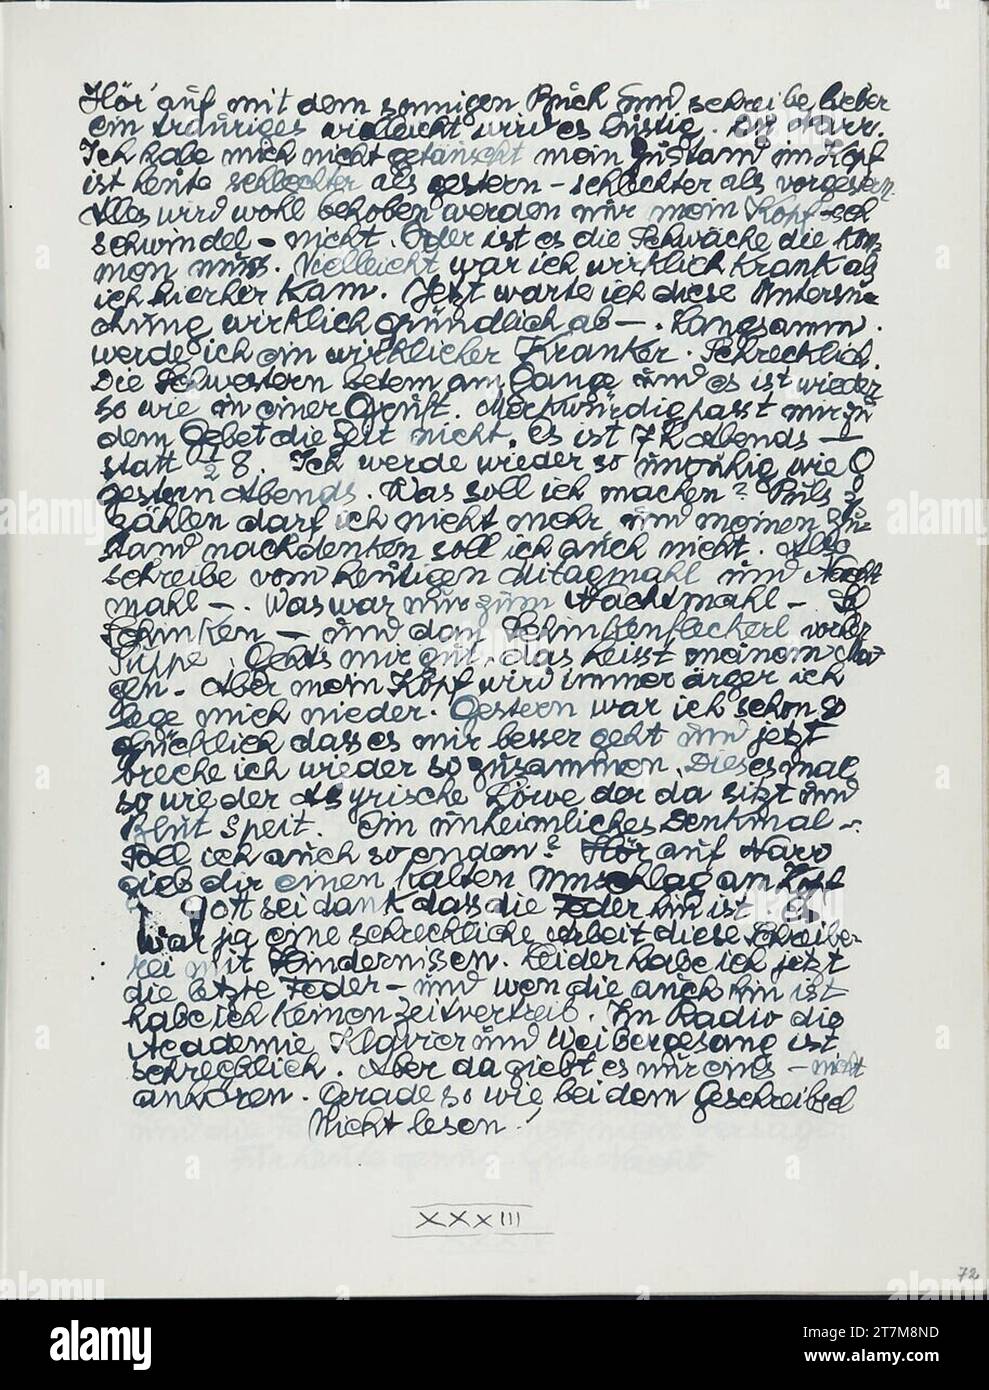 Hör auf mit dem sonnigen Buch und schreibe lieber
ein trauriges vielleicht wird es lustig. du Narr.
Ich habe mich nicht getäuscht mein Zustand im Kopf
ist heute schlechter als gestern – schlechter als vorgestern.
Alles wird wohl behoben werden nur mein Kopf-sch
schwindel – nicht. Oder ist es die Schwäche die kom-
men muss. Vielleicht war ich wirklich krank als
ich hierher kam. Jetzt warte ich diese Untersu-
chung wirklich gründlich ab –. Langsamm.
werde ich ein wirklicher Kranker. Schrecklich.
Die Schwestern beten am Gange und es ist wieder
so wie in einer Gruft. Merkwürdig passt mir zu
dem Gebet die Zeit nicht. Es ist 7h Abends –
statt 1/2 8. Ich werde wieder so unruhig wie
gestern Abends. Was soll ich machen? Puls
zählen darf ich nicht mehr und meinen Zu-
stand nachdenken soll ich auch nicht. Also
schreibe vom heutigen Mitagmahl und Nacht
mahl –. Was war nur zum Nachtmahl –
Schinken – und dann Schinkenfleckerl vorher
Suppe. Gehts mir gut, das heisst meinem Ma-
gen – Aber mein Kopf wird immer ärger ich
lege mich nieder. Gestern war ich schon so
glücklich dass es mir besser geht und jetzt
breche ich wieder so zusammen. Dieses mal
so wie der Asyrische Löwe der da sitzt und
Blut speit. Ein unheimliches Denkmal –
Soll ich auch so enden? Hör auf Narr
gieb dir einen kalten Umschlag am Kopf
Gott sei dank dass die Feder hin ist
war ja eine schreckliche Arbeit diese Schreibe-
rei mit Hindernissen. Leider habe ich jetzt
die letzte Feder – und wen die auch hin ist
habe ich keinen Zeitvertreib. Im Radio die
Academie Klavier und Weibergesang ist
schrecklich. Aber da giebt es nur eins – nicht
anhören. Gerade so wie bei dem Geschreibsel
Nicht lesen!
XXXIII
72
alamy
Image ID: 2T7M8ND
www.alamy.com